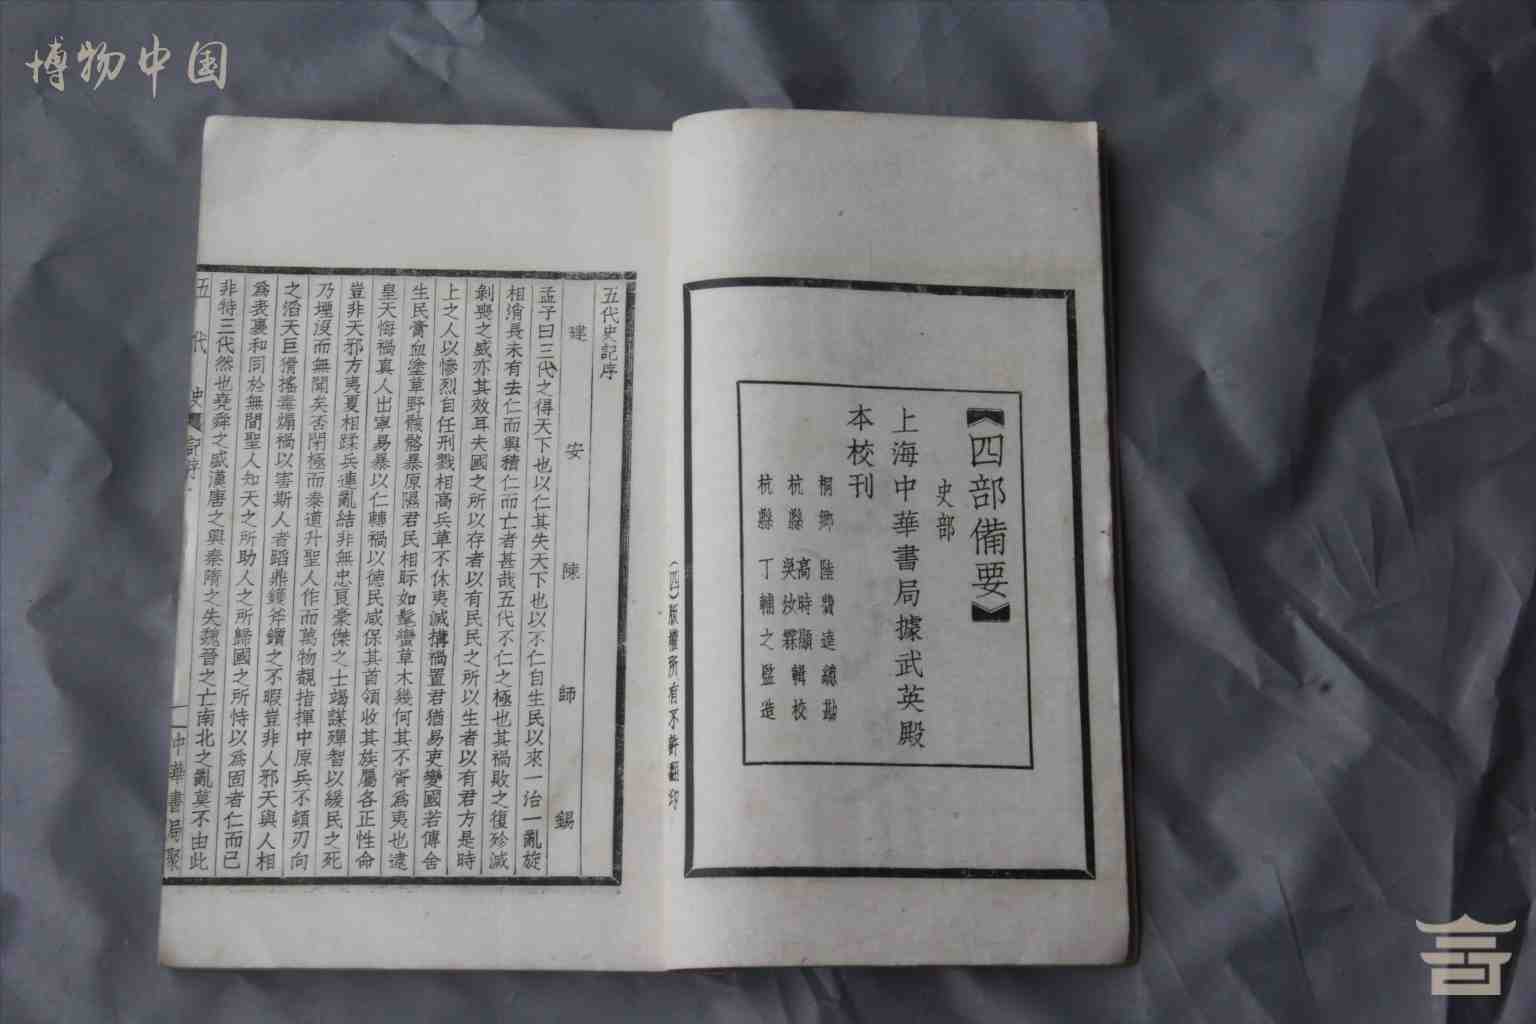 博物中国
【四部備要】
史部
上海中華書局據武英殿
本校刊
桐鄉 陸費逵總勘
杭縣 高時顯 吳汝霖 輯校
杭縣 丁輔之監造
(四)版權所有不許翻印
五代史記序
建安陳師錫
孟子曰三代之得天下也以仁其失天下也以不仁自生民以來一治一亂旋
相消長未有去仁而興積仁而亡者甚哉五代不仁之極也其禍敗之復殄滅
剝喪之威亦其效耳夫國之所以存者以有民民之所以生者以有君方是時
上之人以慘烈自任刑戮相高兵革不休夷滅搆禍置君猶易吏變國若傳舍
生民膏血塗草野骸骼暴原隰君民相眎如髦蠻草木幾何其不胥為夷也逮
皇天悔禍真人出寧易暴以仁轉禍以德民咸保其首領收其族屬各正性命
豈非天邪方夷夏相蹂兵連亂結非無忠良豪傑之士竭謀殫智以緩民之死
乃堙沒而無聞矣否閉極而泰道升聖人作而萬物覩指揮中原兵不頓刃向
之滔天巨猾搖毒煽禍以害斯人者蹈鼎鑊斧鑕之不暇豈非人邪天與人相
為表裏和同於無間聖人知天之所助人之所歸國之所恃以為固者仁而已
非特三代然也堯舜之盛漢唐之興秦隋之失魏晉之亡南北之亂莫不由此
五代史 記序 一 中華書局聚